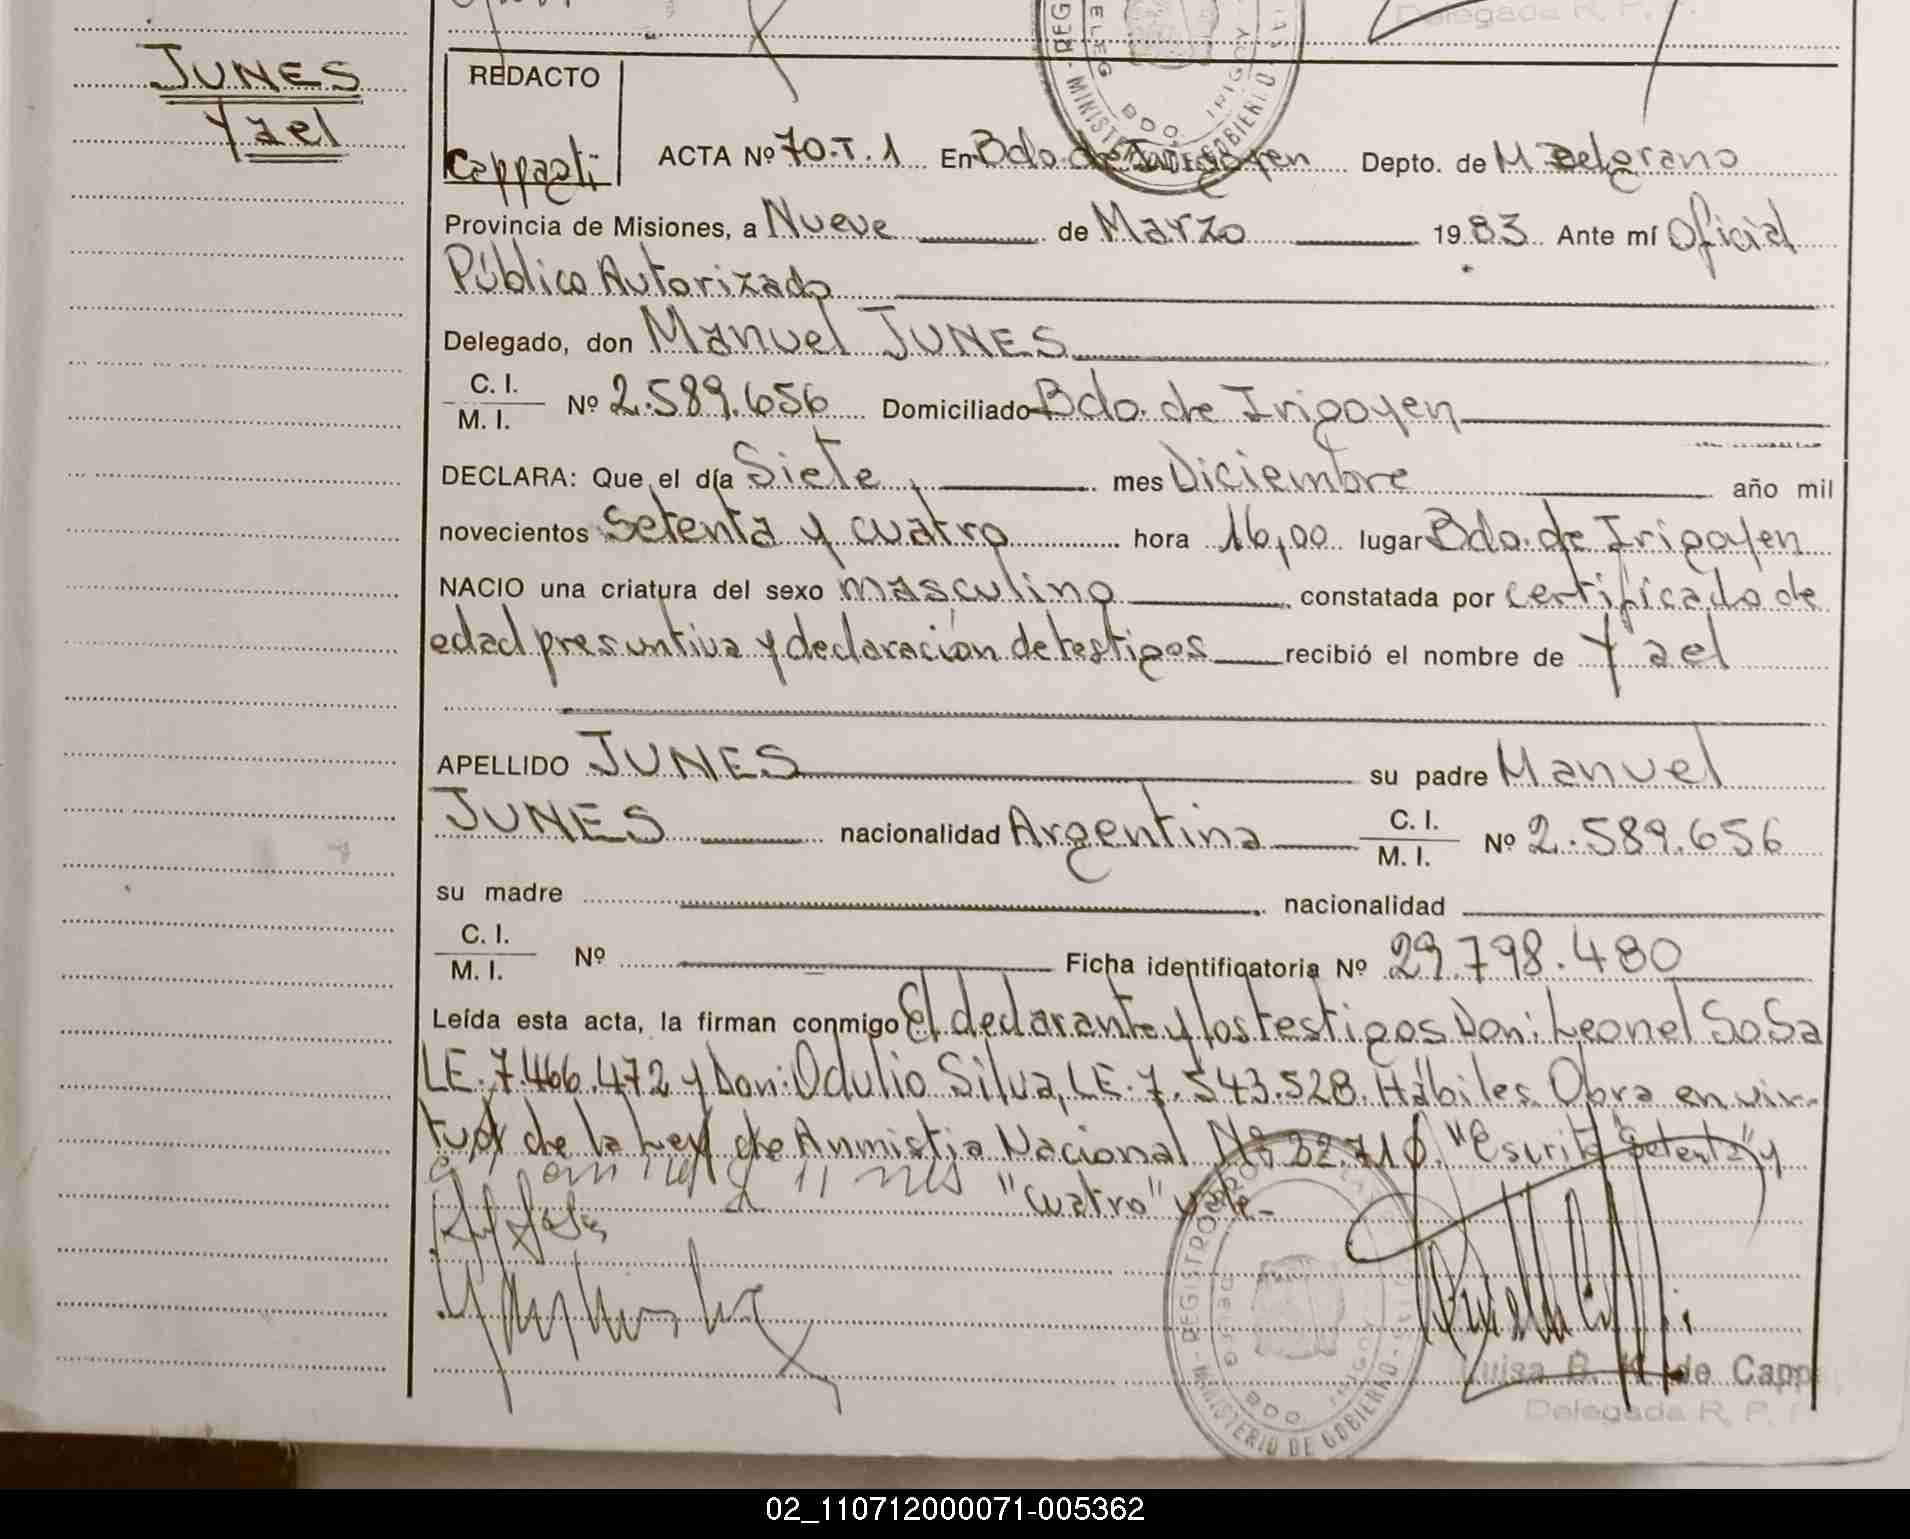 Delegada R. P.
JUNES
Yael
REDACTO
Cappagli
ACTA Nº 70.T.1 En Bdo. de Irigoyen Depto. de M Belgrano
Provincia de Misiones, a Nueve de Marzo 1983 Ante mí Oficial
Público Autorizado
Delegado, don Manuel JUNES
C. I.
M. I. Nº 2.589.656 Domiciliado Bdo. de Irigoyen
DECLARA: Que el día Siete mes Diciembre año mil
novecientos setenta y cuatro hora 16,00 lugar Bdo. de Irigoyen
NACIO una criatura del sexo masculino constatada por certificado de
edad presuntiva y declaración de testigos recibió el nombre de Yael
APELLIDO JUNES su padre Manuel
JUNES nacionalidad Argentina C. I. M. I. Nº 2.589.656
su madre nacionalidad
C. I.
M. I. Nº Ficha identificatoria Nº 29.798.480
Leída esta acta, la firman conmigo El declarante y los testigos Don: Leonel Sosa
LE. 7.466.472 y Don: Odulio Silva, LE. 7.543.528. Hábiles. Obra en vir-
tud de la Ley de Anmistia Nacional Nº 22.710. "Escrito "Setenta" y
"cuatro" vale-
REGISTRO
MINISTERIO DE GOBIERNO
DELEG
BDO. IRIGOY
Luisa B. K. de Capp
Delegada R. P.
02_110712000071-005362